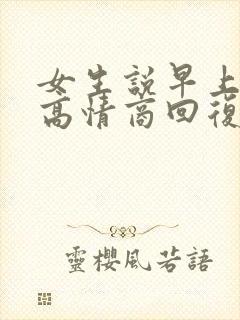 女生說早上
高情商回復
靈櫻風若語